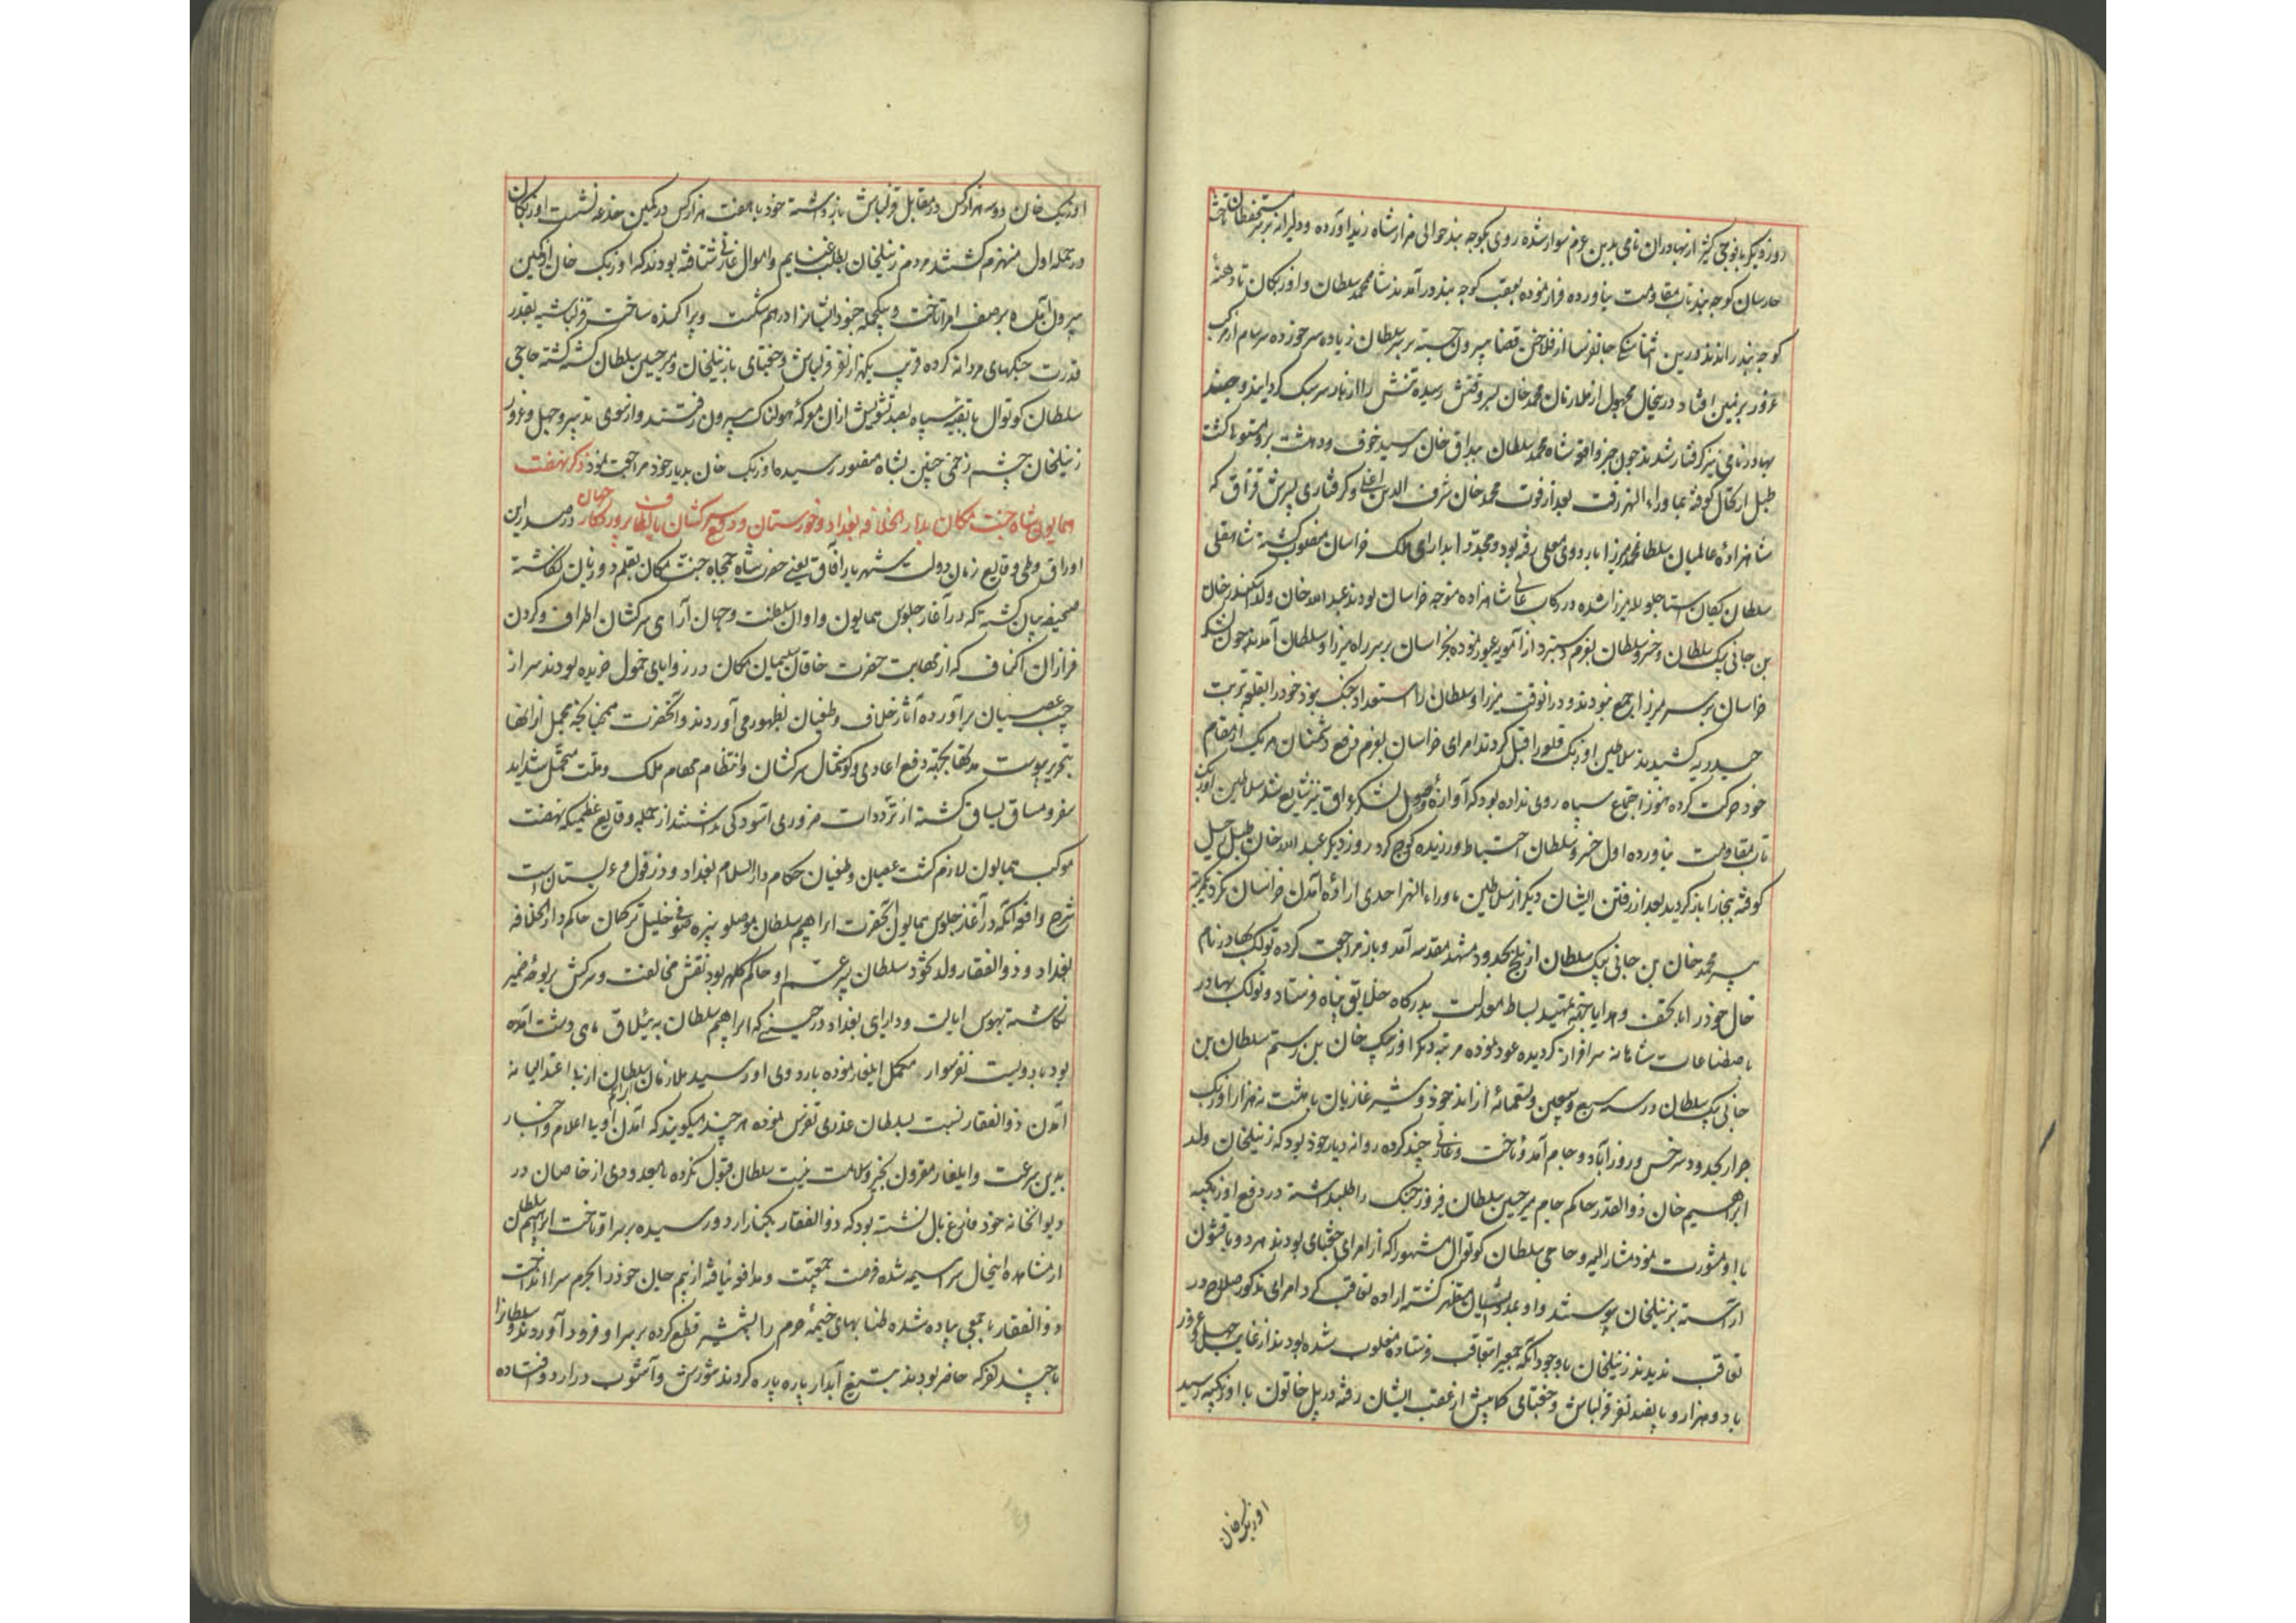 روز دیگر با فوجی کثیر از بهادران نامی بدین عزم سوار شده روی بکوچه بند حوالی مزار شاه زند آورده و دلیرانه بر سر مستحفظان تاخت
حارسان کوچه بند تاب مقاومت نیاورده فرار نموده بعقب کوچه بند درآمدند شاه محمد سلطان و اوزبکان تا دهنهٔ
کوچه بند راندند درین اثنا سنگی جانفرسا از فلاخن قضا بیرون جسته بر سر سلطان زیاده سر خورده سرسام از مرکب
غرور بر زمین افتاد درینحال مجهول از ملازمان محمد خان بسر وقتش رسیده تنش را از بار سر سبک گردانید و چند
بهادر نامی نیز گرفتار شدند چون خبر واقعه شاه محمد سلطان ببراق خان رسید خوف و دهشت برو مستولی گشت
طبل ارتحال کوفته بماوراء النهر رفت بعد از فوت محمد خان شرف الدین اغلی و گرفتاری پسرش قزاق که
شاهزادهٔ عالمیان سلطان محمد میرزا باردوی معلی رفته بود و مجددا بدارای ملک خراسان منصوب گشته شاهقلی
سلطان یکان استاجلو لله میرزا شده در رکاب عالی شاهزاده متوجه خراسان بودند عبد الله خان ولد اسکندر خان
بن جانی بیک سلطان و خسرو سلطان بعزم دستبرد از آمویه عبور نموده بخراسان بر سر راه میرزا و سلطان آمدند چون لشکر
خراسان بر سر میرزا جمع نبودند و در انوقت میرزا و سلطان را استعداد جنگ نبود خود را بقلعه تربت
حیدریه کشیدند سلاطین اوزبک قلعه را قبل کردند امرای خراسان بعزم دفع دشمنان هر یک از مقام
خود حرکت کرده هنوز اجتماع سپاه روی نداده بود که آوازهٔ وصول لشکر عراق نیز شایع شد سلاطین اوزبک
تاب مقاومت نیاورده اول خسرو سلطان احتیاط ورزیده کوچ کرد روز دیگر عبد الله خان طبل رحیل
کوفته ببخارا باز گردید بعد از رفتن ایشان دیگر از سلاطین ماوراء النهر احدی ارادهٔ آمدن خراسان نکرد مگر مرتبه
پیر محمد خان بن جانی بیک سلطان از بلخ بحدود مشهد مقدسه آمد و باز مراجعت کرده تولک بهادر نام
خال خود را با تحف و هدایا بجهة تمهید بساط معذرت بدرگاه خلایق پناه فرستاد و تولک بهادر
باصطناعات شاهانه سرافراز گردیده عود نموده مرتبه دیگر اوزبک خان بن رستم سلطان بن
جانی بیک سلطان در سنه سبع و سبعین و تسعمائة از اندخود و شبرغان با هشت نه هزار اوزبک
جرار بحدود سرخس و زورآباد و جام آمد و تاخت و غارتی چند کرده روانه دیار خود بود که زینلخان ولد
ابراهیم خان ذو القدر حاکم جام میر حسین سلطان فیروز جنگ را طلب داشته در دفع اوزبکیه
با او مشورت نمود مشار الیه و حاجی سلطان کوتوال مشهور را که از امرای جغتای بودند هر دو با قشون
آراسته بزینلخان پیوستند و او بمدد ایشان مستظهر گشته اراده تعاقب کرد امرای مذکور صلاح در
تعاقب ندیدند زینلخان با وجود آنکه جمعی را بتعاقب فرستاده مغلوب شده بودند از غایت جهل و غرور
با دو هزار و پانصد نفر قزلباش و جغتای کمابیش از عقب ایشان رفته در پل خاتون با اوزبکیه رسید
اوزبک خان
اوزبک خان دو سه هزار کس در مقابل قزلباش باز داشته خود با هفت هزار کس در کمین خدعه نشست اوزبکان
در حمله اول منهزم گشتند مردم زینلخان بطلب غنایم و اموال غارتی شتافته بودند که اوزبک خان از کمین
بیرون آمده بر صف امرا تاخت و بیکحمله جنود ایشانرا در هم شکست و پراکنده ساخت قزلباشیه بقدر
قدرت جنگهای مردانه کرده قریب یکهزار نفر قزلباش و جغتای با زینلخان و میر حسین سلطان کشته گشته حاجی
سلطان کوتوال با بقیه سپاه بصد تشویش ازان معرکه هولناک بیرون رفتند و از سوی تدبیر و جهل و غرور
زینلخان چشم زخمی چنین بسپاه منصور رسیده اوزبک خان بدیار خود مراجعت نمود ذکر نهضت
همایون شاه جنت مکان بدار الخلافه بغداد و خوزستان و دفع سرکشان بالطاف پروردگار جهان در صدر این
اوراق و طی وقایع زمان دولت شهریار آفاق یعنی حضرت شاه جمجاه جنت مکان بقلم دو زبان نگاشته
صحیفه بیان گشته که در آغاز جلوس همایون و اوان سلطنت و جهان آرای سرکشان اطراف و گردن
فرازان اکناف که از مهابت حضرت خاقان سلیمان مکان در زوایای خمول خزیده بودند سر از
جیب عصیان برآورده آثار خلاف و طغیان بظهور می آوردند و آنحضرت همچنانچه مجمل از آنها
بتحریر پیوست مدتها بجهة دفع اعادی و گوشمال سرکشان و انتظام مهام ملک و ملت متحمل شداید
سفر و مساق یساق گشته از ترددات ضروری آسودگی نداشتند از جمله وقایع عظیمه که نهضت
موکب همایون لازم گشت عصیان و طغیان حکام دار السلام بغداد و دزفول و عربستان است
شرح واقعه آنکه در آغاز جلوس همایون آنحضرت ابراهیم سلطان موصلو نبیره صوفی خلیل ترکمان حاکم دار الخلافه
بغداد و ذو الفقار ولد نخود سلطان پسر عم او حاکم کلهر بود نقش مخالفت و سرکشی بر لوح ضمیر
نگاشته بهوس ایالت و دارای بغداد در حینی که ابراهیم سلطان به ییلاق ماهی دشت آمده
بود با دویست نفر سوار مکمل ایلغار نموده باردوی او رسید ملازمان ابراهیم سلطان از بی اعتدالیانه
آمدن ذو الفقار نسبت بسلطان غدری تفرس نموده هر چند میگویند که آمدن او بی اعلام و اخبار
بدین سرعت و ایلغار مقرون بخیر و سلامت نیست سلطان قبول نکرده با معدودی از خاصان در
دیوانخانه خود فارغ بال نشسته بود که ذو الفقار بکنار اردو رسیده بر سر او تاخت ابراهیم سلطان
از مشاهده اینحال سراسیمه شده فرصت جمعیت و مدافعه نیافته از بیم جان خود را بحرم سرا انداخت
ذو الفقار با جمعی پیاده شده طنابهای خیمهٔ حرم را بشمشیر قطع کرده بر سر او فرود آوردند و سلطانرا
با چند نفر که حاضر بودند بتیغ آبدار پاره پاره کردند شورش و آشوب در اردو افتاده